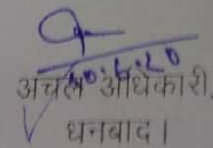 10.6.20
अंचल अधिकारी,
धनबाद।